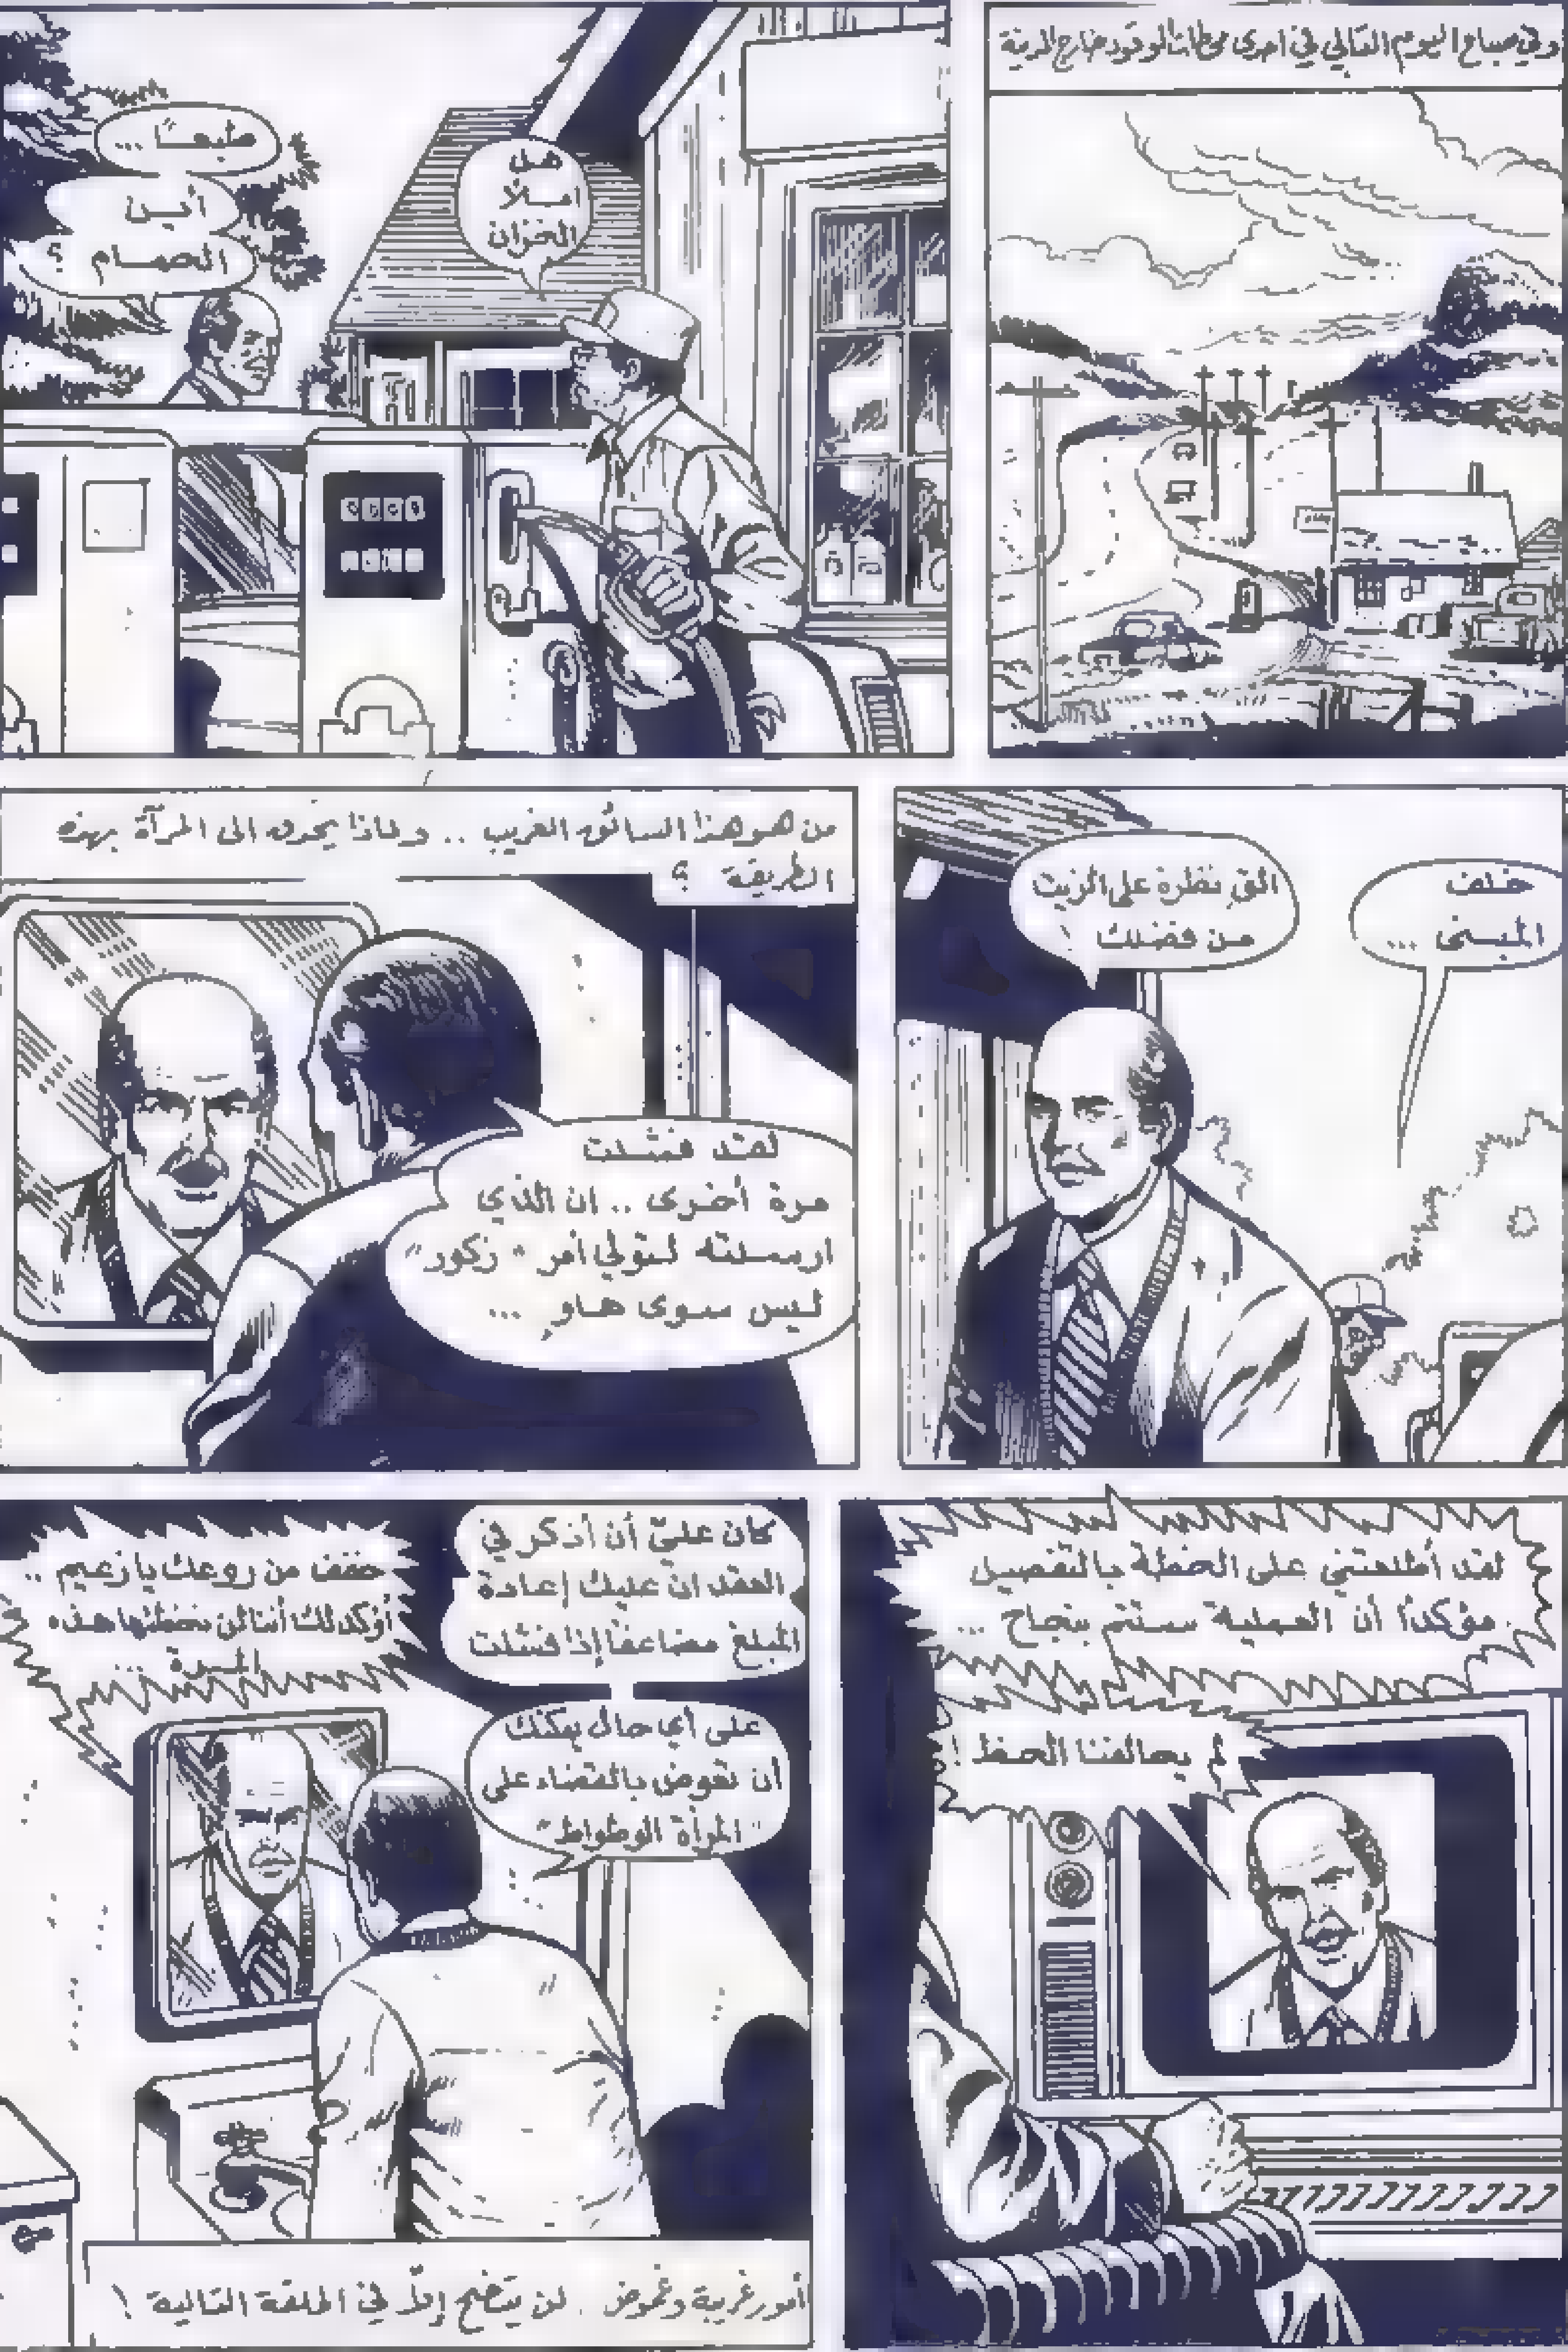 وفي صباح اليوم التالي في احدى محطات الوقود خارج المدينة
هل
املأ
الخزان
طبعـًا ...
أيـن
الحمـام ؟
خلف
المبـنى ...
الق نظرة على الزيت
من فضلك
من هو هذا السائق الغريب .. ولماذا يحدق الى المرآة بهذه
الطريقة ؟
لقد فشلت
مرة أخرى .. ان الذي
ارسلته لتولي أمر " زكور "
ليس سوى هاوٍ ...
لقد أطلعتني على الخطة بالتفصيل
مؤكدًا أن العملية ستتم بنجاح ...
لم يحالفنا الحظ !
كان عليّ أن أذكر في
العقد ان عليك إعادة
المبلغ مضاعفا إذا فشلت
على أي حال يمكنك
أن تعوض بالقضاء على
" المرأة الوطواط "
خفف من روعك يا زعيم ..
أؤكد لك أننا لن نخطئها هذه
المـرة ...
أمور غريبة وغموض . لن يتضح إلاّ في الحلقة التالية !